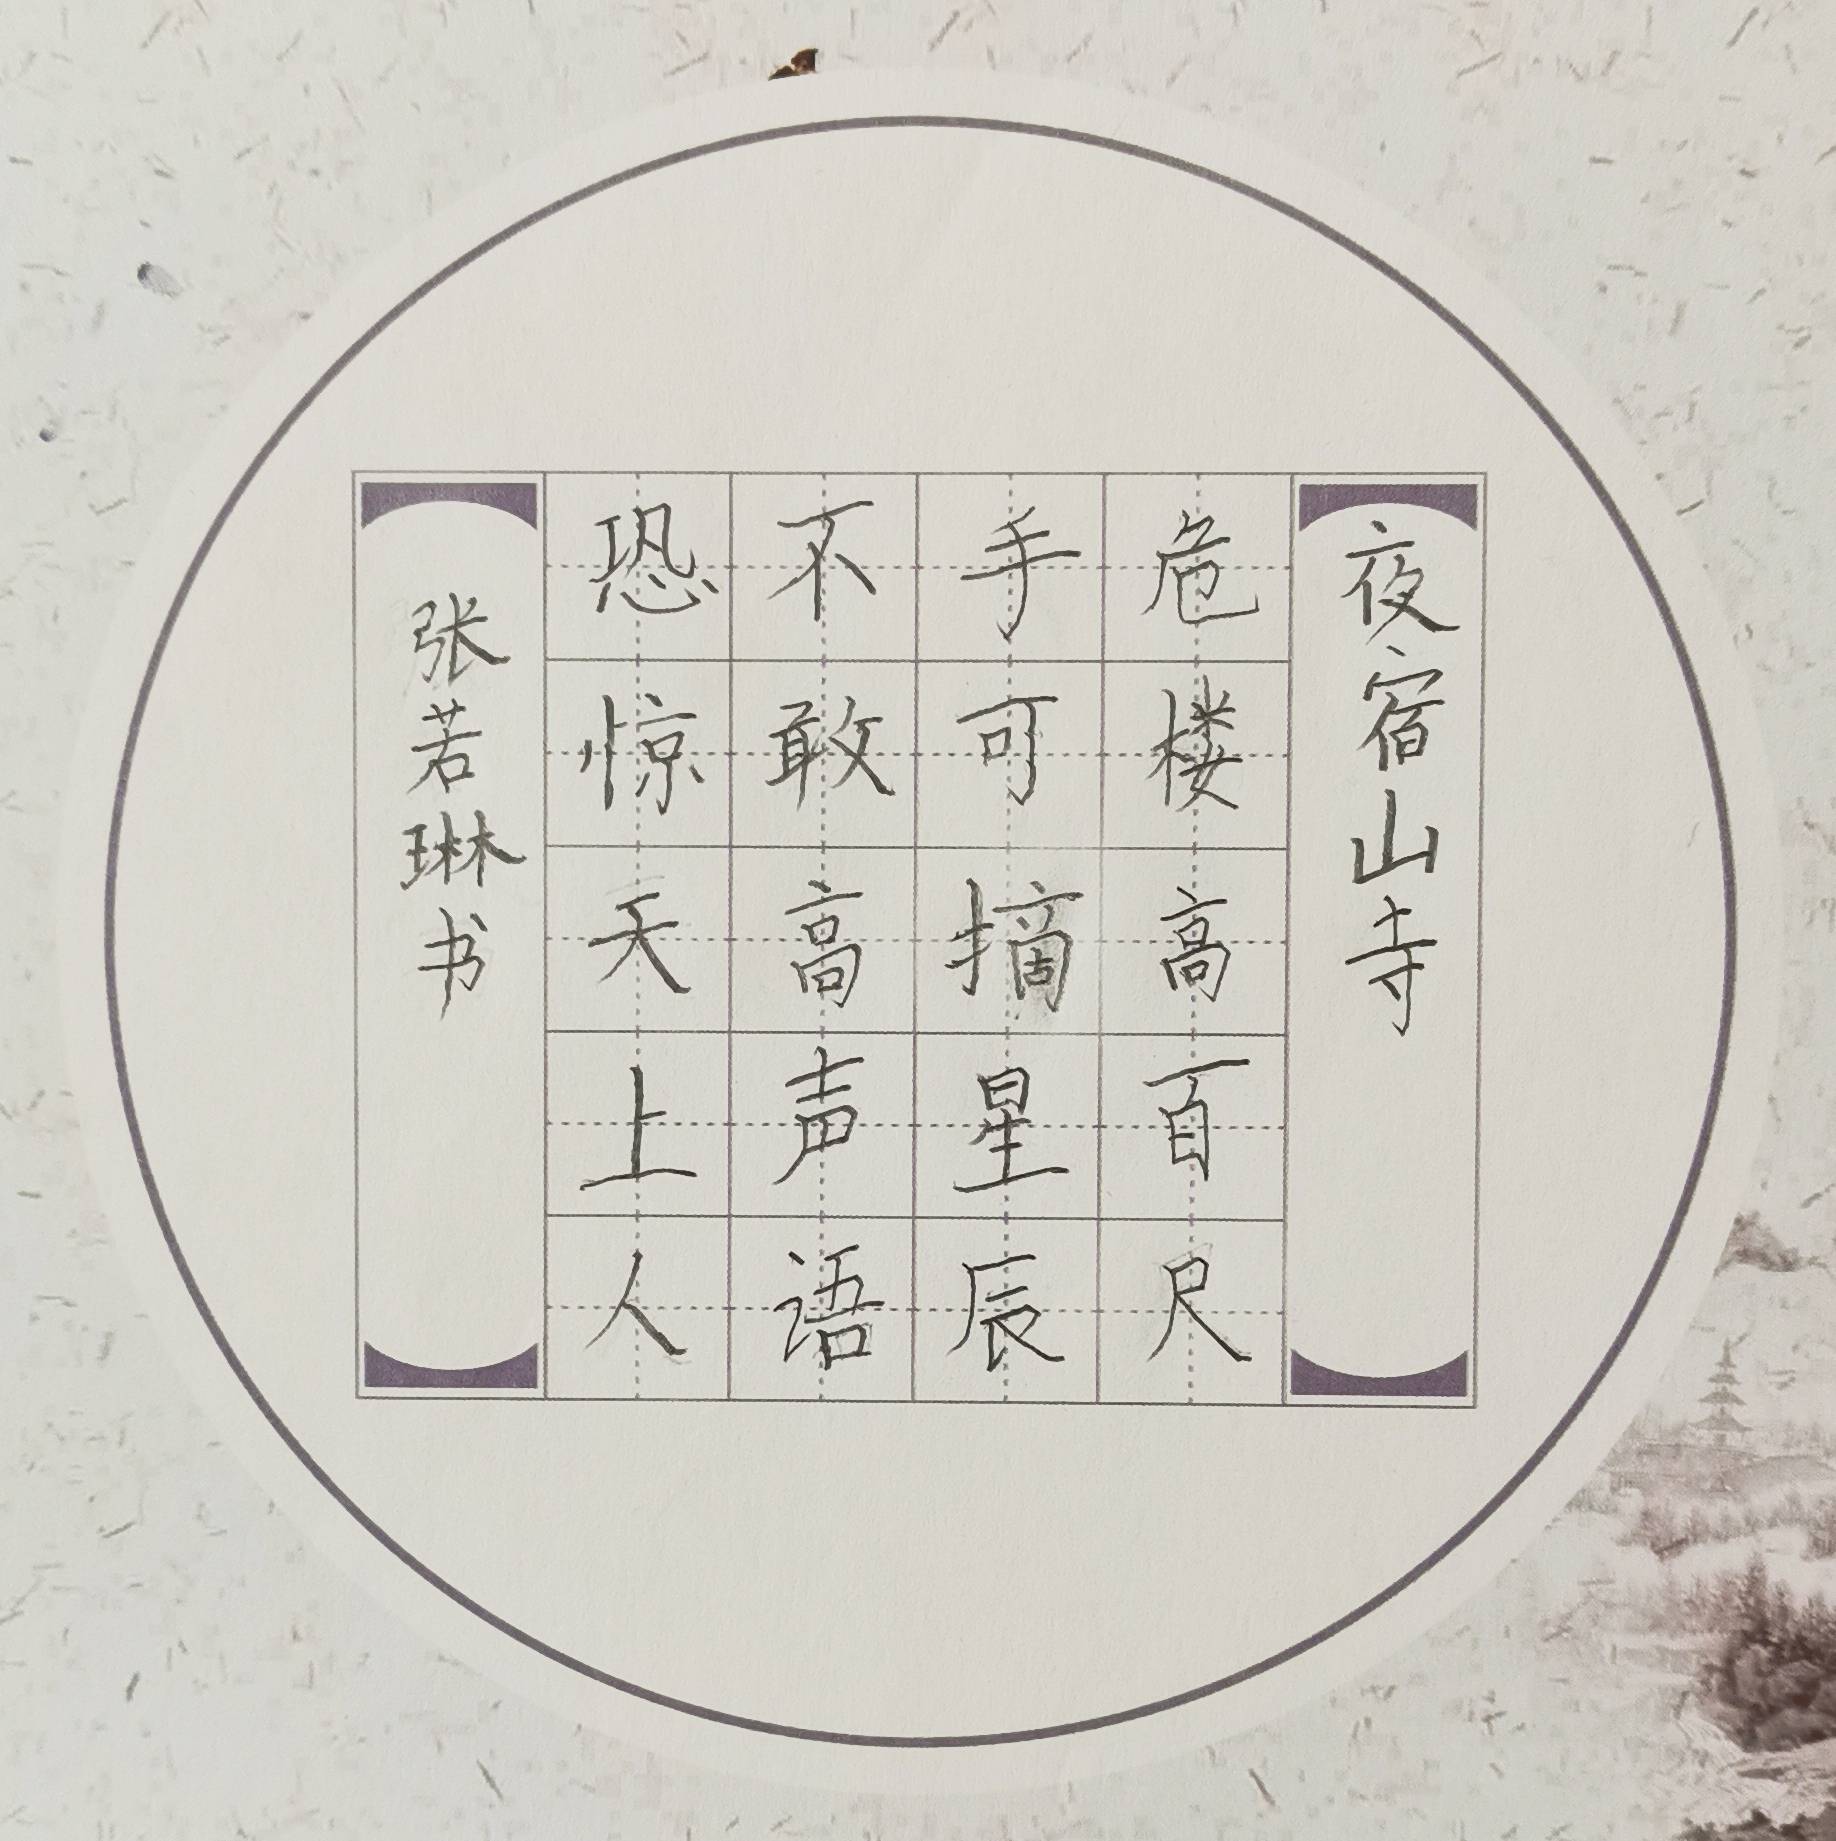 夜宿山寺
危楼高百尺
手可摘星辰
不敢高声语
恐惊天上人
张若琳书